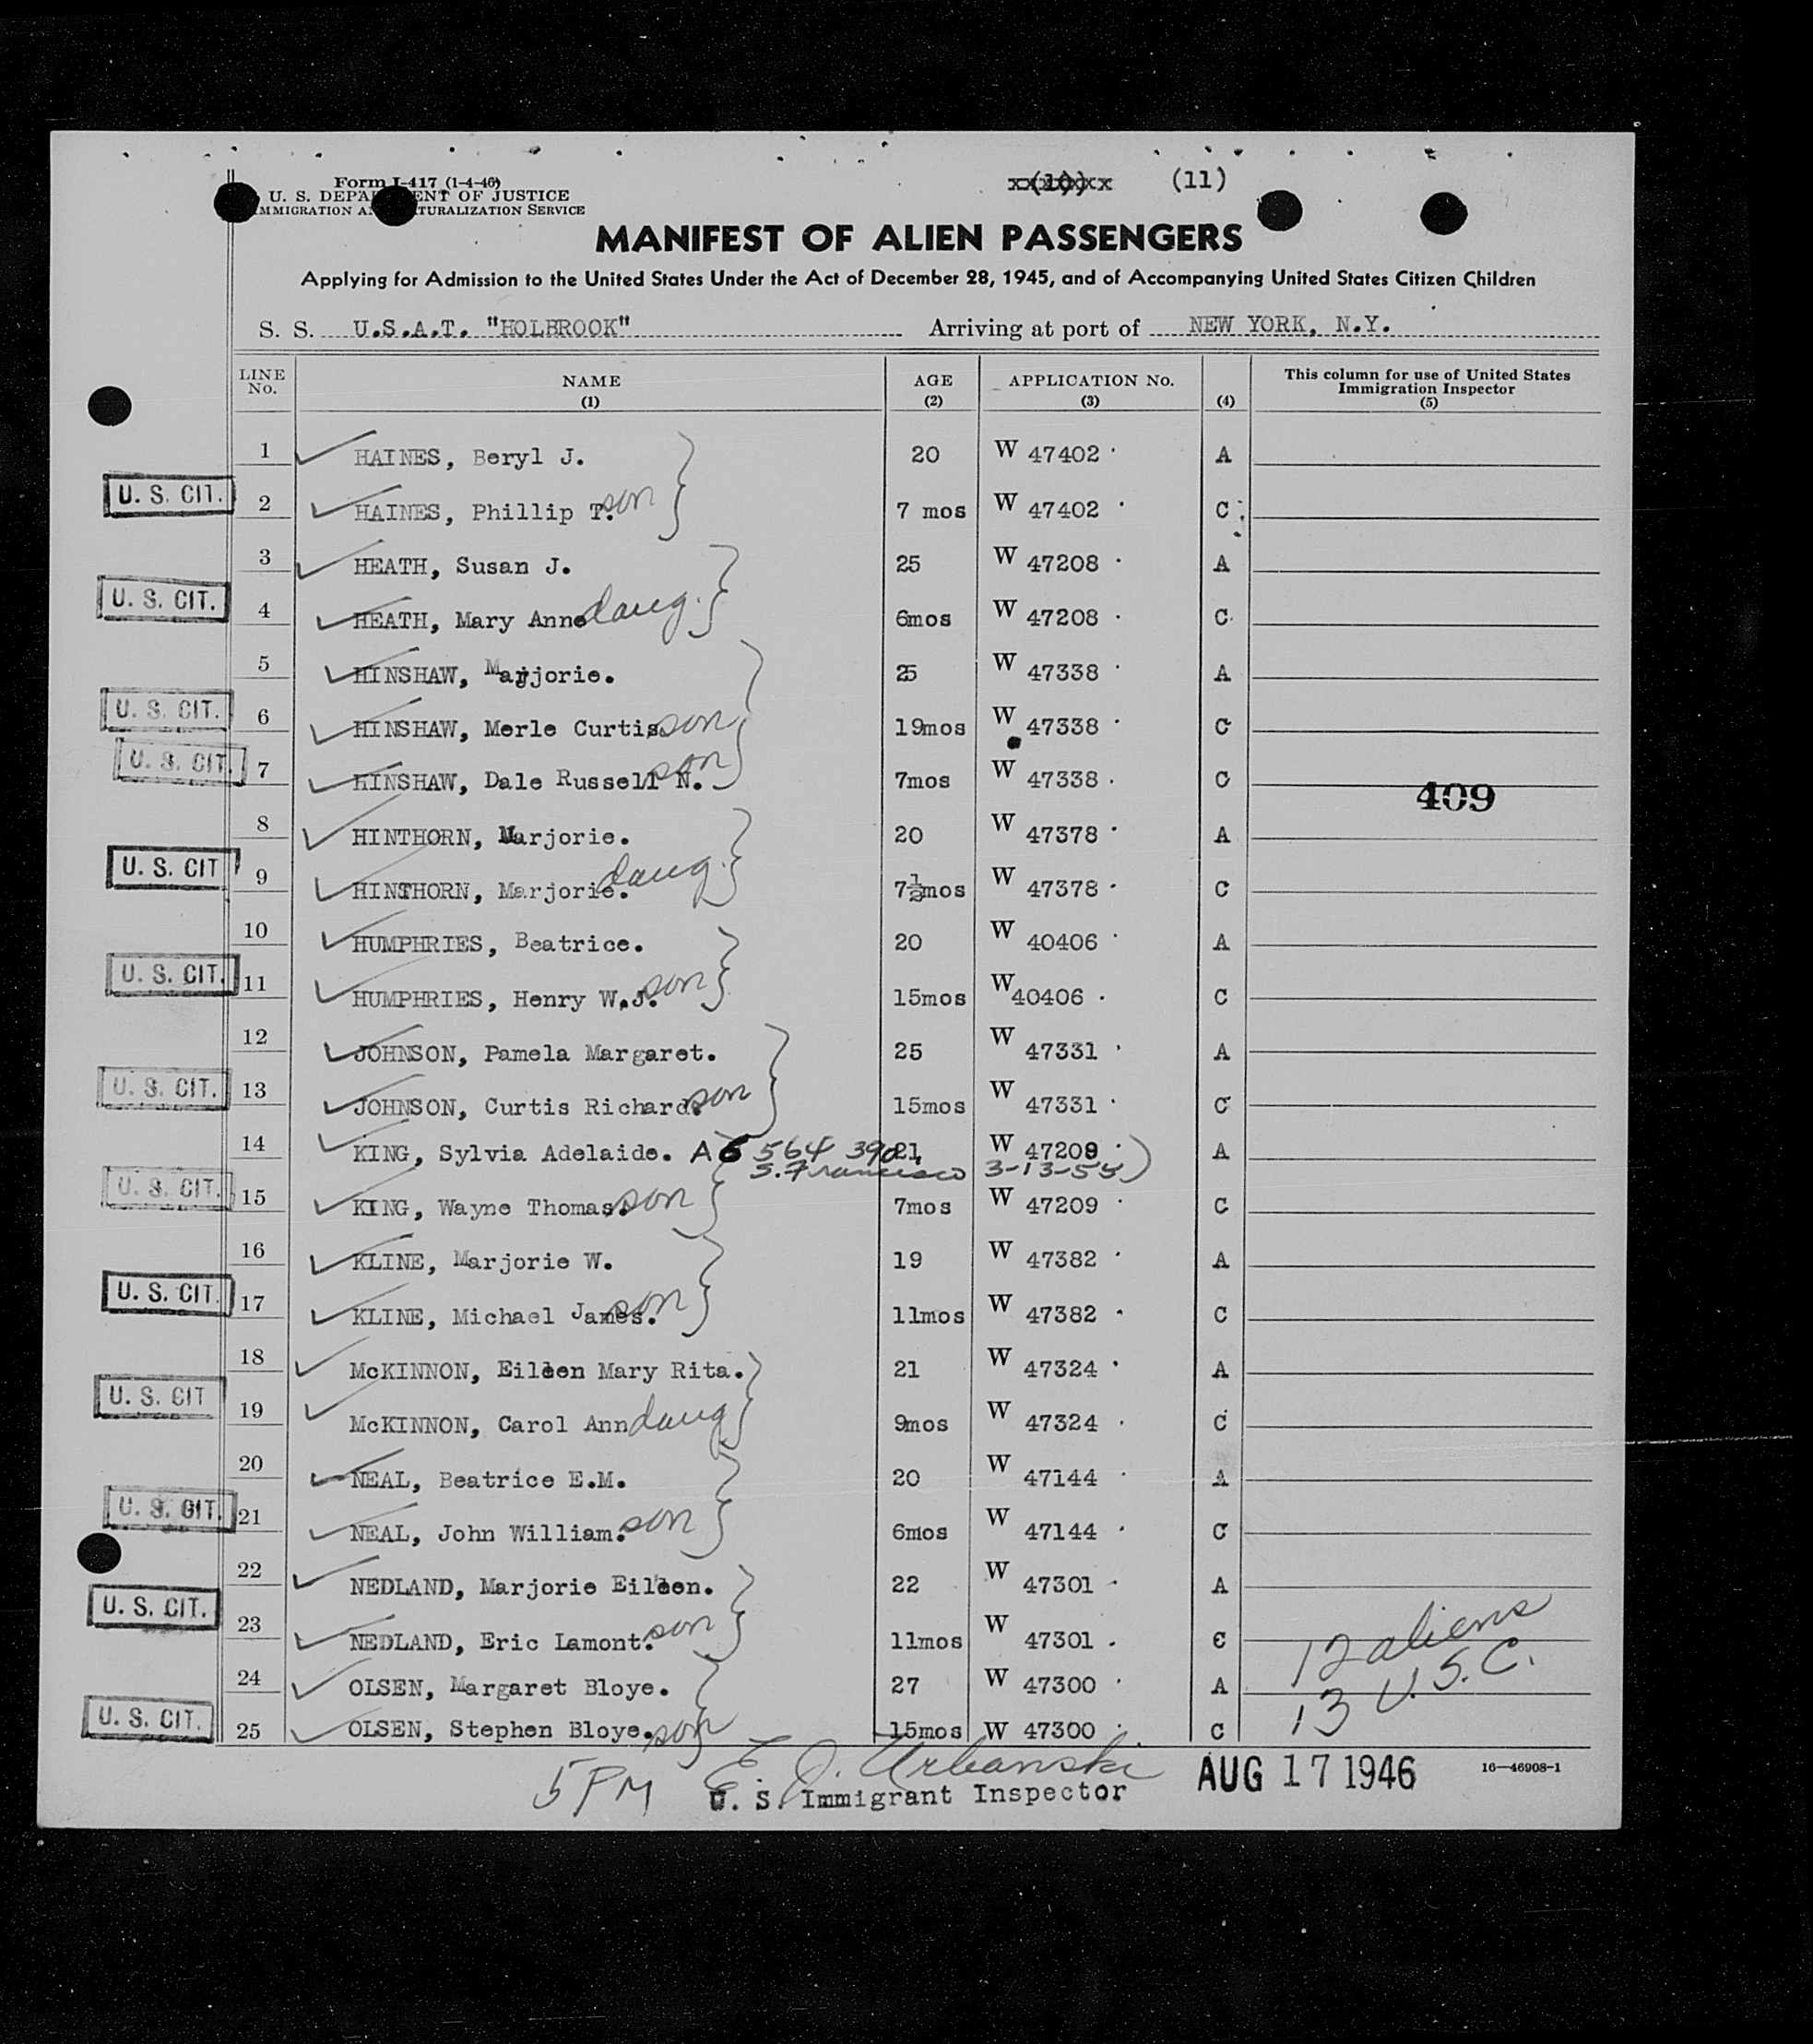 Form I-417 (1-4-46)
U. S. DEPA ENT OF JUSTICE
IMMIGRATION A TURALIZATION SERVICE
xx(10)xx (11)
MANIFEST OF ALIEN PASSENGERS
Applying for Admission to the United States Under the Act of December 28, 1945, and of Accompanying United States Citizen Children
S. S. U.S.A.T. "HOLBROOK" Arriving at port of NEW YORK, N.Y.
LINE No. NAME (1) AGE (2) APPLICATION No. (3) (4) This column for use of United States Immigration Inspector (5)
1 HAINES, Beryl J. 20 W 47402 A
U. S. CIT. 2 HAINES, Phillip T. son 7 mos W 47402 C
3 HEATH, Susan J. 25 W 47208 A
U. S. CIT. 4 HEATH, Mary Anne daug. 6mos W 47208 C
5 HINSHAW, Marjorie. 25 W 47338 A
U. S. CIT. 6 HINSHAW, Merle Curtis. son 19mos W 47338 C
U. S. CIT. 7 HINSHAW, Dale Russell N. son 7mos W 47338 C
409
8 HINTHORN, Marjorie. 20 W 47378 A
U. S. CIT 9 HINTHORN, Marjorie. daug. 7½mos W 47378 C
10 HUMPHRIES, Beatrice. 20 W 40406 A
U. S. CIT. 11 HUMPHRIES, Henry W.J. son 15mos W 40406 C
12 JOHNSON, Pamela Margaret. 25 W 47331 A
U. S. CIT. 13 JOHNSON, Curtis Richard. son 15mos W 47331 C
14 KING, Sylvia Adelaide. A6 564 390 21 W 47209 A
S. Francisco 3-13-55)
U. S. CIT. 15 KING, Wayne Thomas. son 7mos W 47209 C
16 KLINE, Marjorie W. 19 W 47382 A
U. S. CIT. 17 KLINE, Michael James. son 11mos W 47382 C
18 McKINNON, Eileen Mary Rita. 21 W 47324 A
U. S. CIT 19 McKINNON, Carol Ann daug 9mos W 47324 C
20 NEAL, Beatrice E.M. 20 W 47144 A
U. S. CIT. 21 NEAL, John William. son 6mos W 47144 C
22 NEDLAND, Marjorie Eileen. 22 W 47301 A
U. S. CIT. 23 NEDLAND, Eric Lamont. son 11mos W 47301 C
12 aliens
24 OLSEN, Margaret Bloye. 27 W 47300 A
13 U.S.C.
U. S. CIT. 25 OLSEN, Stephen Bloye. son 15mos W 47300 C
5 PM E. J. Urbanski AUG 17 1946 16—46908-1
U. S. Immigrant Inspector